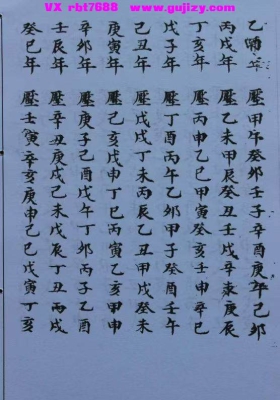 VX rbt7688 www.gujizy.com
乙酉年 壓甲午癸卯壬子辛酉庚午己卯
丙戌年 壓乙未甲辰癸丑壬戌辛未庚辰
丁亥年 壓丙申乙巳甲寅癸亥壬申辛巳
戊子年 壓丁酉丙午乙卯甲子癸酉壬午
己丑年 壓戊戌丁未丙辰乙丑甲戌癸未
庚寅年 壓己亥戊申丁巳丙寅乙亥甲申
辛卯年 壓庚子己酉戊午丁卯丙子乙酉
壬辰年 壓辛丑庚戌己未戊辰丁丑丙戌
癸巳年 壓壬寅辛亥庚申己巳戊寅丁亥